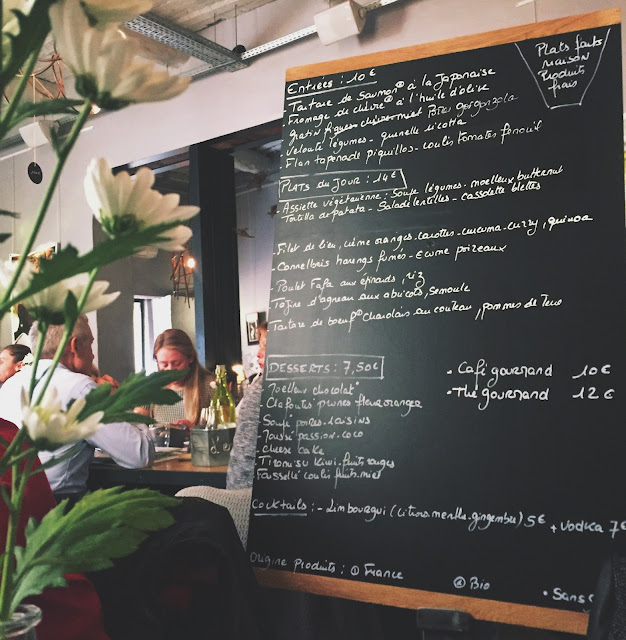 Plats faits
maison
Produits
frais
Entrées : 10 €
Tartare de Saumon à la Japonaise
Fromage de chèvre à l'huile d'olive
gratin figues chèvre miel Bleu gorgonzola
velouté légumes - quenelle ricotta
Flan taponade piquillos - coulis tomates fenouil
Plats du Jour : 14 €
Assiette végétarienne : Soupe légumes - moelleux butternut
Tortilla de patata - Salade lentilles - cassolette blettes
- Filet de lieu, crème oranges - carottes - curcuma - curry, quinoa
- Cannelloni harengs fumés - Ecume poireaux
- Poulet Fafa aux épinards, riz
- Tajine d'agneau aux abricots, semoule
- Tartare de boeuf Charolais au couteau, pommes de Terre
DESSERTS : 7,50€
Moelleux chocolat
Clafoutis prunes fleur oranger
Soufflé poires - raisins
Mousse passion - coco
- cheese cake
- Tiramisu Kiwi - fruits rouges
- Faisselle coulis fruits - miel
- Café gourmand 10 €
- Thé gourmand 12 €
Cocktails : - Limbourgui (citrons menthe - gingembre) 5€ + Vodka 7€
Origine Produits : ① France
④ Bio
• Sans